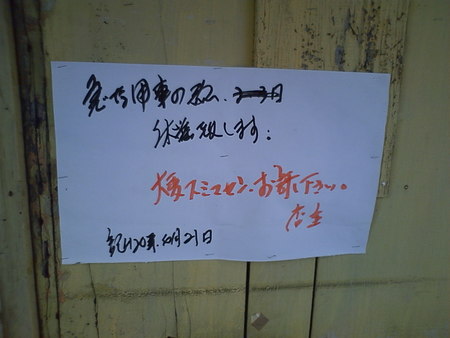 急な用事の為、日
休業致します。
大変スミマセン。お許し下さい。
店主
記H20年.10月21日